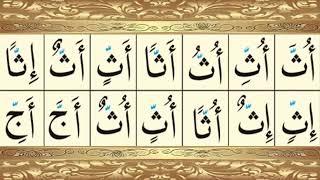 أُثَّ أُثِّ أُثُّ أَثًّا أَثٍّ أَثٌّ إِثًّا
إِثٍّ إِثٌّ أُثًّا أُثٍّ أُثٌّ أَجَّ أَجِّ